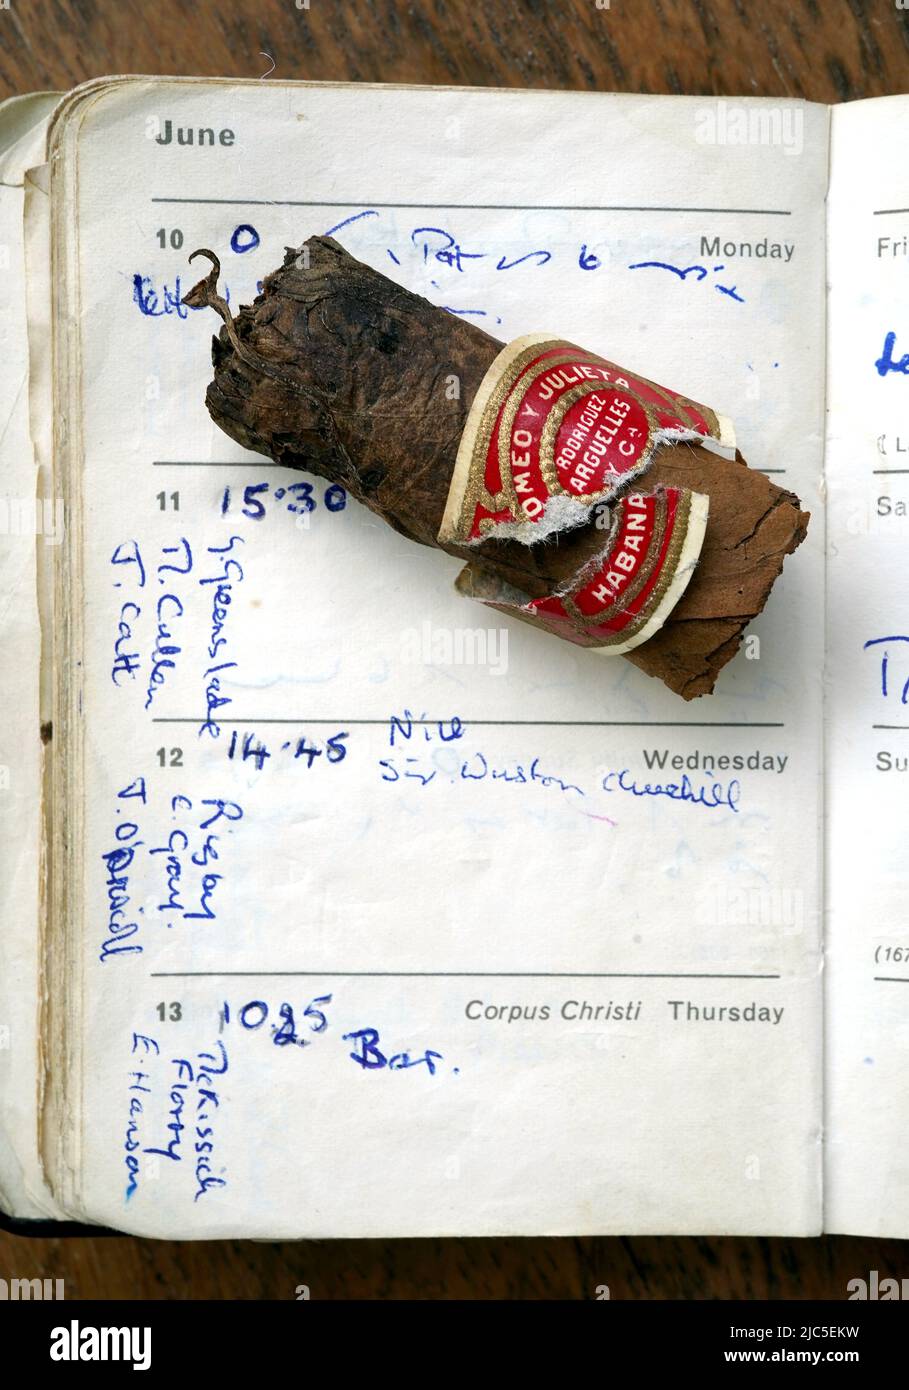 June
10 Monday
Pat
Fri
ROMEO Y JULIETA
RODRIGUEZ
ARGUELLES
Y Cª
HABANA
11 15.30
G. Greenslade
M. Cullen
J. Catt
Sa
12 14.45 Nice Wednesday
Sir Winston Churchill
Rigby
E. Gray.
J. O'Driscoll
Su
(167
13 10.25 Corpus Christi Thursday
Bar.
McKissich
Florry
E. Hanson
alamy
alamy
Image ID: 2JC5EKW
www.alamy.com